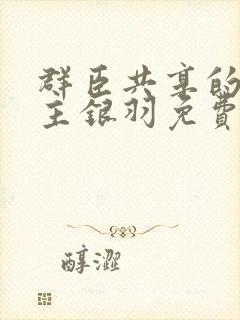 群臣共享的
主银羽免费
醇澀